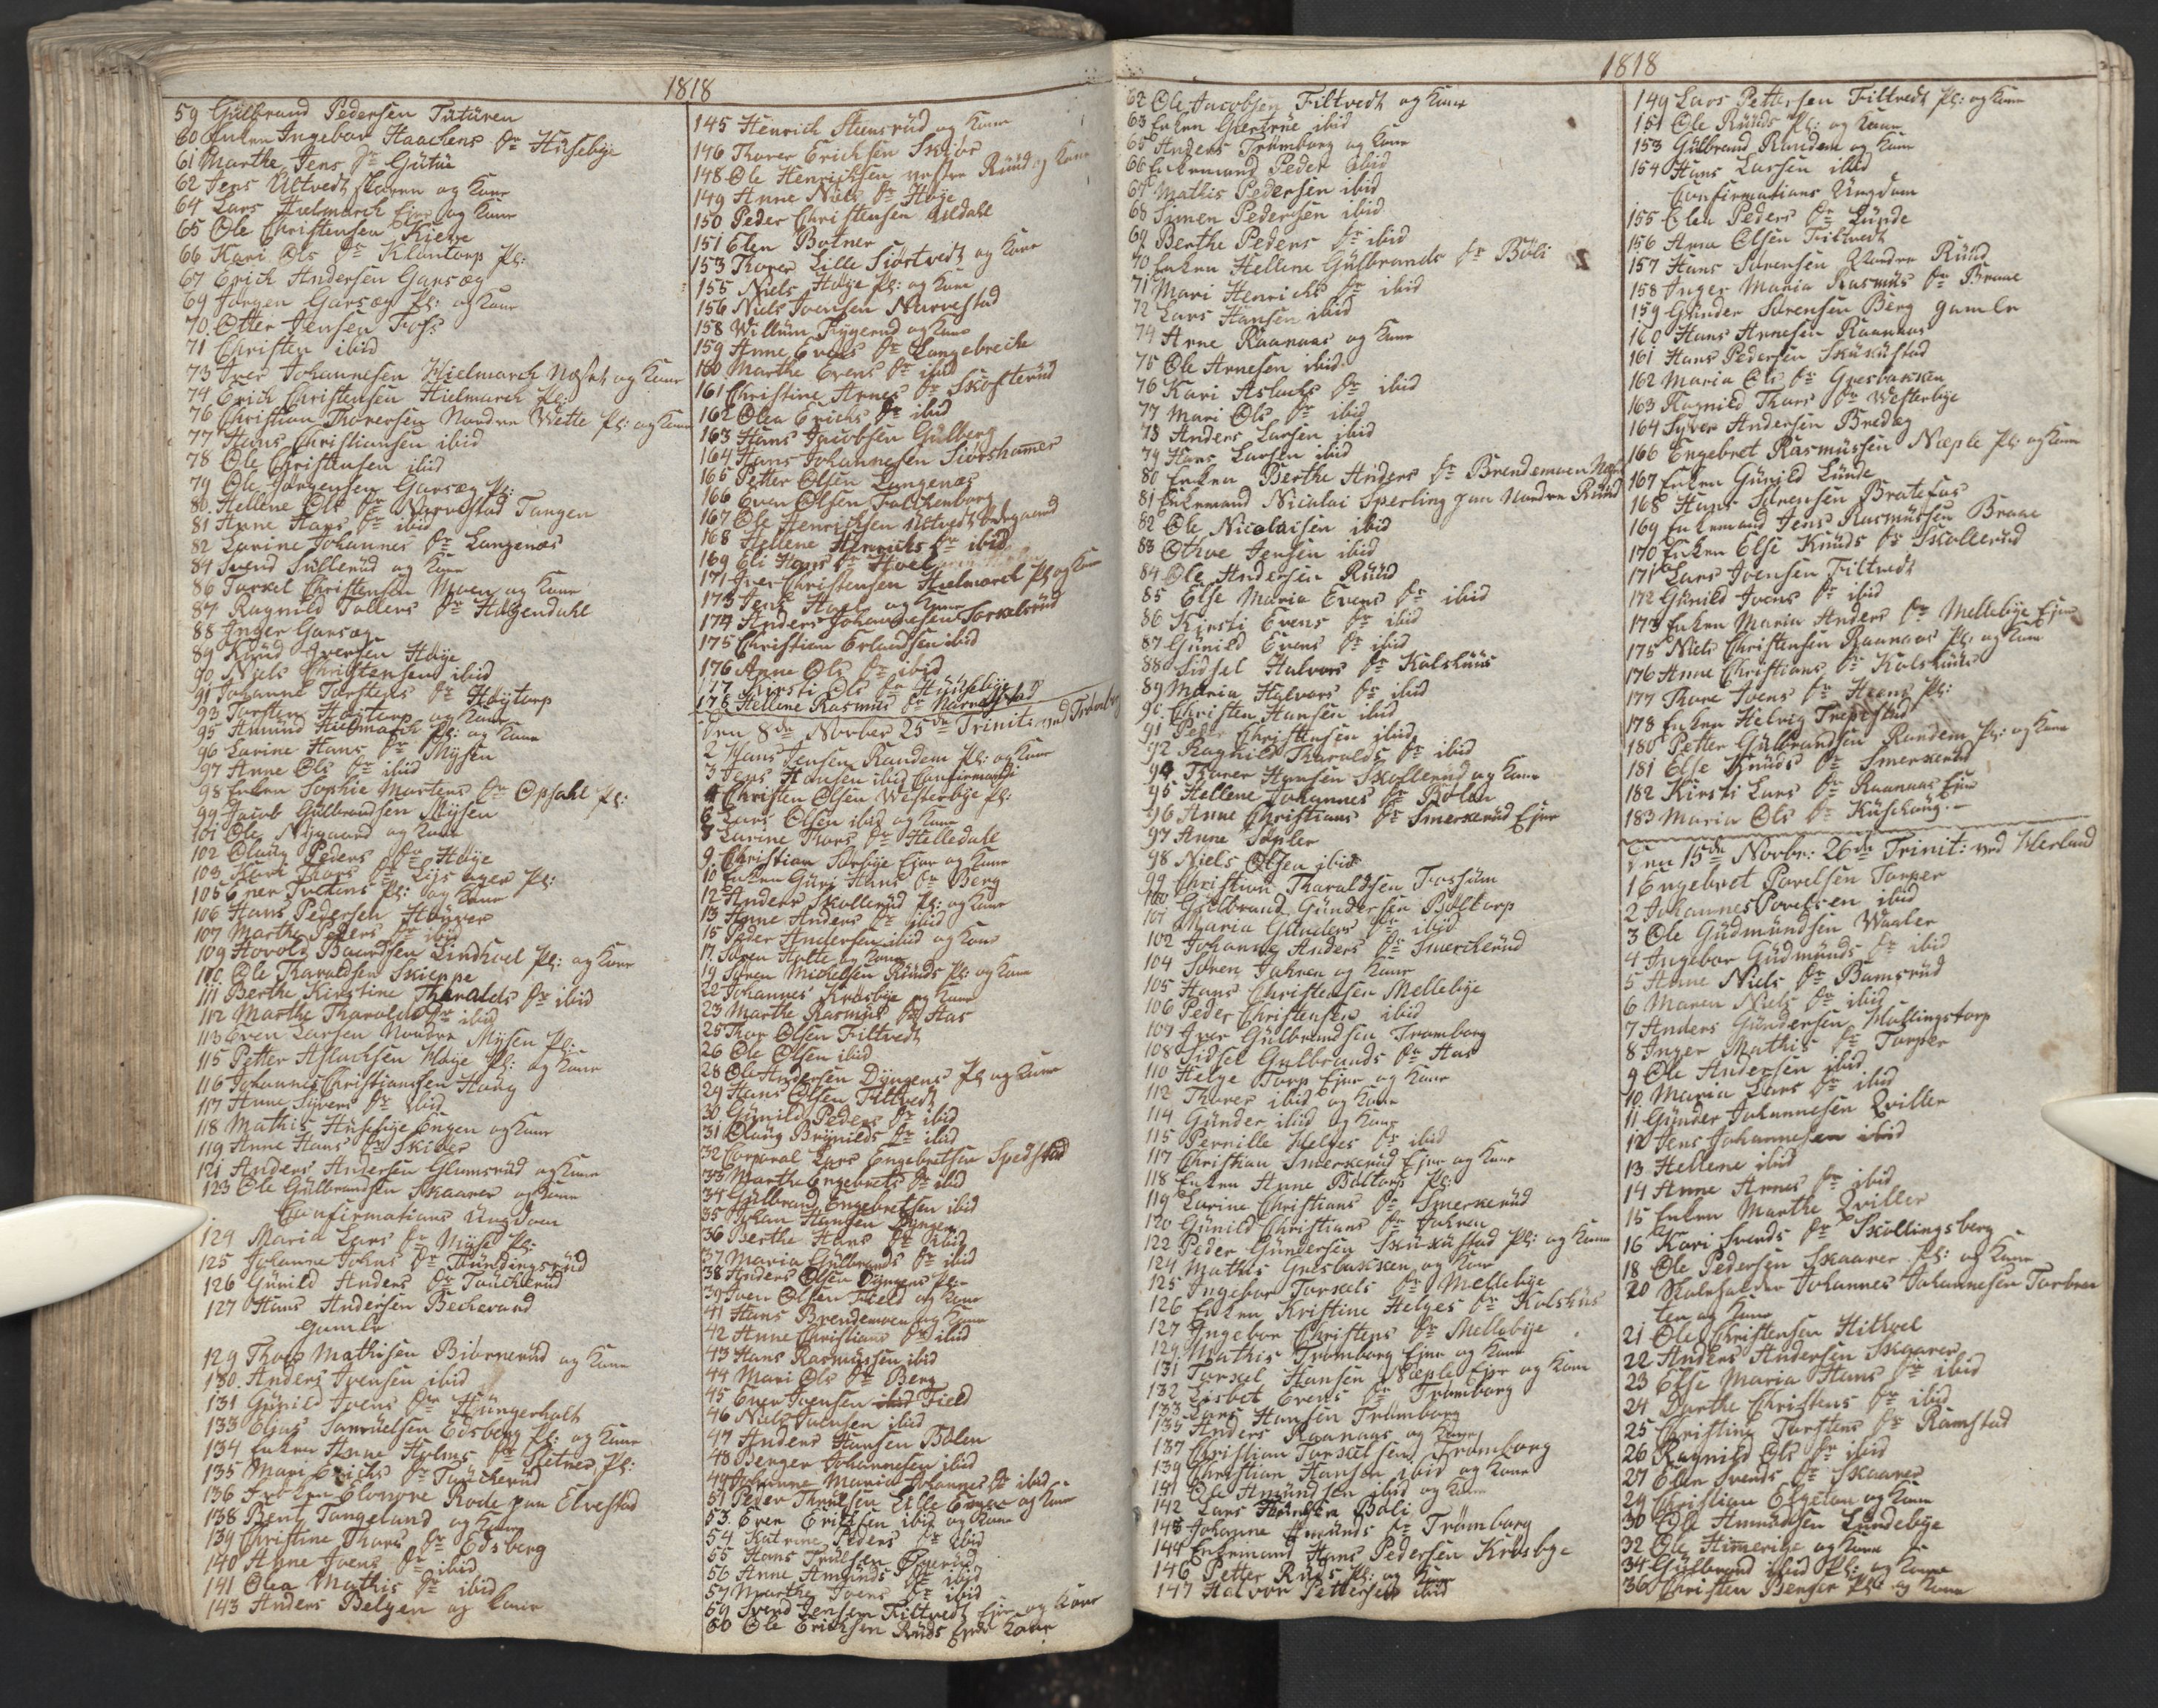 1818
59 Gülbrand Pedersen Tütüren
60 Enken Ingebor Haachens Dr Hüsebye
61 Marthe Jens Dr Gütüe
62 Jens Ultvedt skoven og Kone
64 Lars Hielmarch Ejer og Kone
65 Ole Christensen Kierre
66 Kari Ols Dr Klontorp Pl:
67 Erich Andersen Garsæg
69 Jørgen Garsæg Pl: og Kone
70. Otter Jensen Foss
71 Christen ibid
73 Iver Johannesen Hielmarch Næset og Kone
74 Erich Christensen Hielmarch Pl:
76 Christian Thorersen Nordre Wette Pl: og Kone
77 Hans Christiansen ibid
78 Ole Christensen ibid
79 Ole Jørgensen Garsæg Pl:
80. Hellene Ols Dr Narvestad Tangen
81 Anne Hans Dr ibid
82 Larine Johannes Dr Langenæs
84 Svend Sulterüd og Kone
86 Torkel Christensen Moen og Kone
87 Ragnild Tollers Dr Halgendahl
88 Inger Garsæg
89 Knüd Iversen Høÿe
90 Niels Christensen ibid
91 Johanne Torstens Dr Høÿtorp
93 Torsten Høÿtorp og Kone
95 Amund Hielmarch Pl: og Kone
96 Larine Hans Dr Mÿsen
97 Anne Ols Dr ibid
98 Enken Sophie Mortens Dr Opsahl Pl:
99 Jacob Gülbrandsen Mÿsen
101 Ole Nÿgaard og Kone
102 Olaüg Peders Dr Høÿe
103 Kari Thors Dr Lÿs ager Pl:
105 Ener Füchens Pl: og Kone
106 Hans Pedersen Høÿver
107 Marthe Peders Dr ibid
109 Hovold Baardsen Lindhoel Pl: og Kone
110 Ole Tharaldsen Skieppe
111 Berthe Kirstine Tharalds Dr ibid
112 Marthe Tharalds Dr ibid
113 Even Larsen Nordre Mÿsen Pl:
115 Petter Aslachsen Høÿe Pl: og Kone
116 Johannes Christiansen Haüg
117 Anne Siÿvers Dr ibid
118 Mathis Hüsebÿe Engen og Kone
119 Anne Hans Dr Skiver
121 Anders Andersen Glomsrüd og Kone
123 Ole Gülbrandsen Skaarer og Kone
Confirmations Ungdom
124 Maria Lars Dr Mÿse Pl:
125 Johanne Johns Dr Kündingsrüd
126 Günild Anders Dr Taücherüd
127 Hans Andersen Bechevard
gamle
129 Thor Mathisen Biørnerüd og Kone
130. Anders Ivensen ibid
131 Günild Joens Dr Hüngerholt
133 Elias Samüelsen Edsberg Pl: og Kone
134 Enken Anne Holms Dr Sletner Pl:
135 Mari Erichs Dr Taücherüd
136 Frøken Elonore Rode paa Elvestad
138 Bent Tangeland og Kone
139 Christine Thors Dr Edsberg
140 Anne Joens Dr ibid
141 Olea Mathis Dr ibid
143 Anders Belgen og Kone
145 Henrich Steensrüd og Kone
146 Thorer Erichsen Skiør
148 Ole Henrichsen vestre Rüüd og Kone
149 Anne Niels Dr Høÿe
150 Peder Christensen Asedahl
151 Elen Botner
153 Thorer Lille Siørtvedt og Kone
155 Niels Høÿe Pl: og Kone
156 Niels Joensen Narvestad
158 Willüm Rÿgerud og Kone
159 Anne Evens Dr Langebrecke
160 Marthe Evens Dr ibid
161 Christine Arnes Dr Skofterüd
162 Olea Erichs Dr ibid
163 Hans Jacobsen Gülberg
164 Hans Johannesen Siørshamer
165 Petter Olsen Langenæs
166 Even Olsen Falckenborg
167 Ole Henrichsen Ultvedt Ødegaard
168 Hellene Henrichs Dr ibid
169 Eli Hans Dr Hoel
171 Iver Christensen Hielmarch Pl og Kone
173 Jens Hoel og Kone
174 Anders Johannesen Torkelsrüd
175 Christian Erlandsen ibid
176 Anne Ols Dr ibid
177 Kirsti Ols Dr Hüüsebÿe
178 Hellene Rasmus Dr Narvestad
Den 8de Novber 25de Trinit: ved Trømborg
2 Hans Jensen Randem Pl: og Kone
3 Jens Hansen ibid Confirmandi
4 Christen Olsen Westerbÿe Pl:
6 Lars Olsen ibid og Kone
8 Larine Thors Dr Helledahl
9. Christian Sørbÿe Ejer og Kone
10 Enken Güri Hans Dr Berg
12 Anders Skollerüd Pl: og Kone
13 Anne Anders Dr ibid
15 Peder Andersen ibid og Kone
17. Søren Holte og Kone
19 Søren Michelsen Rüüds Pl: og Kone
22 Johannes Krosbÿe og Kone
23 Marthe Rasmüs Dr Aas
25 Thor Olsen Filtvedt
26 Ole Olsen ibid
28 Ole Andersen Dÿngens Pl og Kone
29 Hans Olsen Filtvedt
30 Günild Peders Dr ibid
31 Olaüg Brÿnilds Dr ibid
32 Corporal Lars Engebretsen Spedstad
33 Marthe Engebrets Dr ibid
34 Gülbrand Engebretsen ibid
35 Johan Hansen Dÿngen
36 Berthe Hans Dr ibid
37 Maria Gülbrands Dr ibid
38 Anders Olsen Dÿngens Pl:
39 Iven Olsen Field og Kone
41 Hans Brendemoen og Kone
42 Anne Christians Dr ibid
43 Hans Rasmüssen ibid
44 Mari Ols Dr Berg
45 Ener Ivensen ibid Field
46 Niels Ivensen ibid
47 Anders Hansen Bølen
48 Berger Johannesen ibid
49 Johanne Maria Johannes Dr ibid
51 Peder Thrülsen Lille Graae og Kone
53. Even Erichsen ibid og Kone
54 Katrine Peders Dr ibid
55 Hans Trülsen Øgerüd
56 Anne Amunds Dr ibid
57 Marthe Joens Dr ibid
59 Svend Jensen Filtvedt Ejer og Kone
60 Ole Erichsen Rüds Ejer Kone
1818
62 Ole Jacobsen Filtvedt og Kone
63 Enken Giertrüe ibid
65 Anders Trømborg og Kone
66 Enkemand Peder ibid
67 Mathis Pedersen ibid
68 Simen Pedersen ibid
69 Berthe Peders Dr ibid
70 Enken Hellene Gülbrands Dr Bøli
71 Mari Henrichs Dr ibid
72 Lars Hansen ibid
74 Arne Raanaas og Kone
75 Ole Arnesen ibid
76 Kari Aslachs Dr ibid
77 Mari Ols Dr ibid
78 Anders Larsen ibid
79 Hans Larsen ibid
80 Enken Berthe Anders Dr Brendemoen
81 Enkemand Nicolai Sperling paa Nordre Rüüd
82 Ole Nicolaisen ibid
83 Othoe Jensen ibid
84 Ole Andersen Rüüd
85 Else Maria Evens Dr ibid
86 Kirsti Evens Dr ibid
87 Günild Evens Dr ibid
88 Sidsel Halvors Dr Kolshüüs
89 Maria Halvors Dr ibid
90. Christen Hansen ibid
91 Peder Christensen ibid
92 Ragnild Tharalds Dr ibid
94 Thorer Hansen Skollerüd og Kone
95 Hellene Johannes Dr Bølen
96 Anne Christians Dr Smerkerüd Ejer
97 Anne Sæpler
98 Niels Olsen ibid
99 Christian Tharaldsen Fossüm
100 Gülbrand Gündersen Boltorp
101 Maria Günders Dr ibid
102 Johanne Anders Dr Smerckerüd
104 Søren Jahren og Kone
105 Hans Christensen Mellebÿe
106 Peder Christensen ibid
107 Iver Gülbrandsen Trømborg
108 Sidsel Gulbrands Dr Aas
110 Helge Torp Ejer og Kone
112 Thorer ibid og Kone
114 Günder ibid og Kone
115 Pernille Helges Dr ibid
117 Christian Smerkerüd Ejer og Kone
118 Enken Anne Boltorp Pl:
119 Larine Christians Dr Smerkerüd
120 Günild Christians Dr Jahren
122 Peder Gündersen Sküküstad Pl: og Kone
124 Mathis Gresbakken og Kone
125 Ingebor Torkels Dr Mellebÿe
126 Enken Kristine Helges Dr Kolshüs
127 Ingebor Christens Dr Mellebÿe
129 Mathis Trømborg Ejer og Kone
131 Torkel Hansen Næple Ejer og Kone
132 Lisbet Evens Dr Trømborg
133 Lars Hansen Trømborg
135 Anders Raanaas og Kone
137 Christian Torkelsen Trømborg
139 Christian Hansen ibid og Kone
141 Ole Amündsen ibid og Kone
142 Lars Thorersen Bøli
143 Johanne Amünds Dr Trømborg
144 Enkemand Hans Pedersen Krosbye
146 Petter Rüds Pl: og Kone
147 Halvor Pettersen ibid
149 Lars Pettersen Filtvedt Pl: og Kone
151 Ole Rüüds Pl: og Kone
153 Gülbrand Randem og Kone
154 Hans Larsen ibid
Confirmations Ungdom
155 Elen Peders Dr Lünde
156 Arne Olsen Filtvedt
157 Hans Sørensen Nordre Rüüd
158 Inger Maria Rasmüs Dr Braae
159 Günder Sørensen Berg gamle
160 Hans Arnesen Raanaas
161 Hans Pedersen Sküküstad
162 Maria Ols Dr Gresbakken
163 Ragnild Thors Dr Westerbÿe
164 Syver Andersen Bredeg
166 Engebret Rasmüssen Næple Pl: og Kone
167 Enken Günild Lünde
168 Hans Sørensen Bratefos
169 Enkemand Jens Rasmüssen Braae
170 Enken Else Knüds Dr Skollerüd
171 Lars Ivensen Filtvedt
172 Günild Joens Dr ibid
173 Enken Maria Anders Dr Mellebÿe Ejer
175 Niels Christensen Raanaas Pl: og Kone
176 Anne Christians Dr Kolshüüs
177 Thore Joens Dr Heens Pl:
178 Enken Helvig Trepstad
180 Petter Gülbrandsen Randem Pl: og Kone
181 Else Knüds Dr Smerkerüd
182 Kirsti Lars Dr Raanaas Ejer
183 Maria Ols Dr Küshaüg.-
Den 15de Novbr: 26de Trinit: ved Herland
1 Engebret Povelsen Torper
2 Johannes Povelsen ibid
3 Ole Güdmündsen Waaler
4 Ingebor Güdmünds Dr ibid
5 Anne Niels Dr Bamsrüd
6 Maren Niels Dr ibid
7 Anders Gündersen Mallingstorp
8 Inger Mathis Dr Torper
9 Ole Andersen ibid
10 Maria Lars Dr ibid
11 Günder Johannesen Qviller
12 Jens Johannesen ibid
13 Hellene ibid
14 Anne Arnes Dr ibid
15 Enken Marthe Qviller
16 Kari Svends Dr Skollingsberg
18 Ole Pedersen Skaarer Pl: og Kone
20 Skoleholder Johannes Johannesen Torbraa
ten og Kone
21 Ole Christensen Hithoel
22 Anders Andersen Skaarer
23 Else Maria Hans Dr ibid
24 Dorthe Christens Dr ibid
25 Christine Torstens Dr Ramstad
26 Ragnild Ols Dr ibid
27 Elen Svends Dr Skaarer
29 Christian Elgeton og Kone
30 Ole Amündsen Lundebÿe
32 Ole Himerige og Kone
34 Gülbrand ibid Pl: og Kone
36 Christen Berger Pl: og Kone